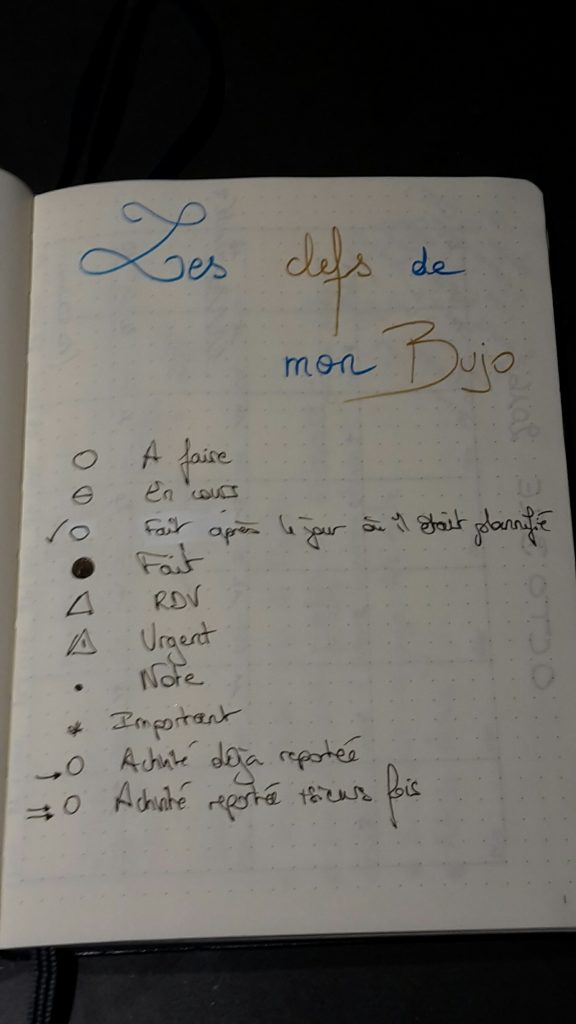 Les clefs de
mon Bujo
○ A faire
⊖ En cours
✓○ Fait après le jour où il était plannifié
● Fait
△ RDV
⚠ Urgent
• Note
* Important
→○ Activité déja reportée
⇉○ Activité reportée +sieurs fois
1